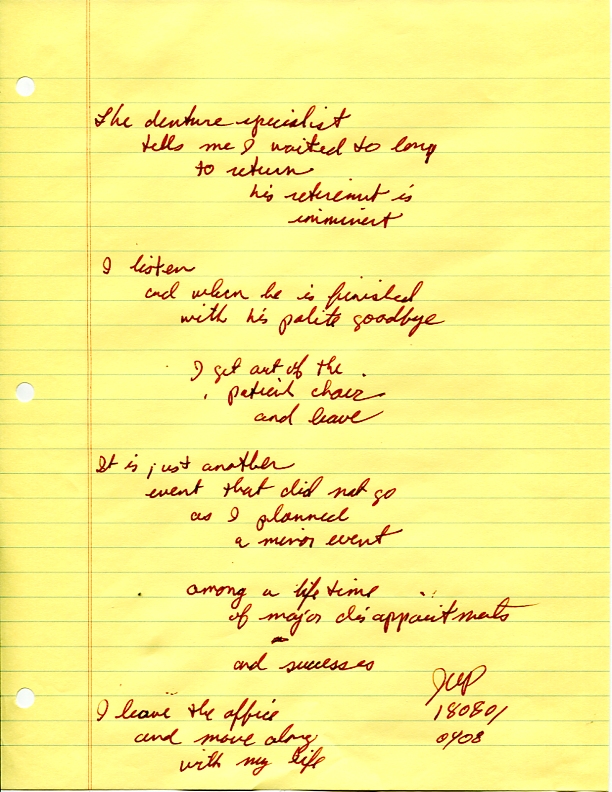 The denture specialist
tells me I waited to long
to return
his retirement is
imminent
I listen
and when he is finished
with his polite goodbye
I get out of the
patient chair
and leave
It is just another
event that did not go
as I planned
a minor event
among a life time
of major disappointments
and successes
I leave the office
and move along
with my life
JWP
180801
0908